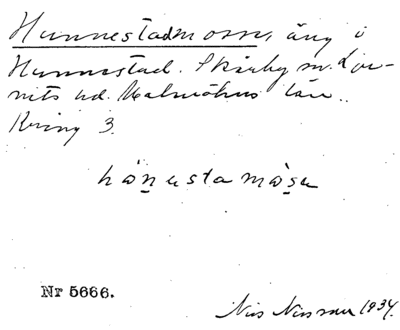 Hunnestadmosse, äng i
Hunnestad. Skårby sn. Lju-
nits hd. Malmöhus län..
Kring 3.
hönestamåse
Nr 5666.
Nils Nilsson 1934.